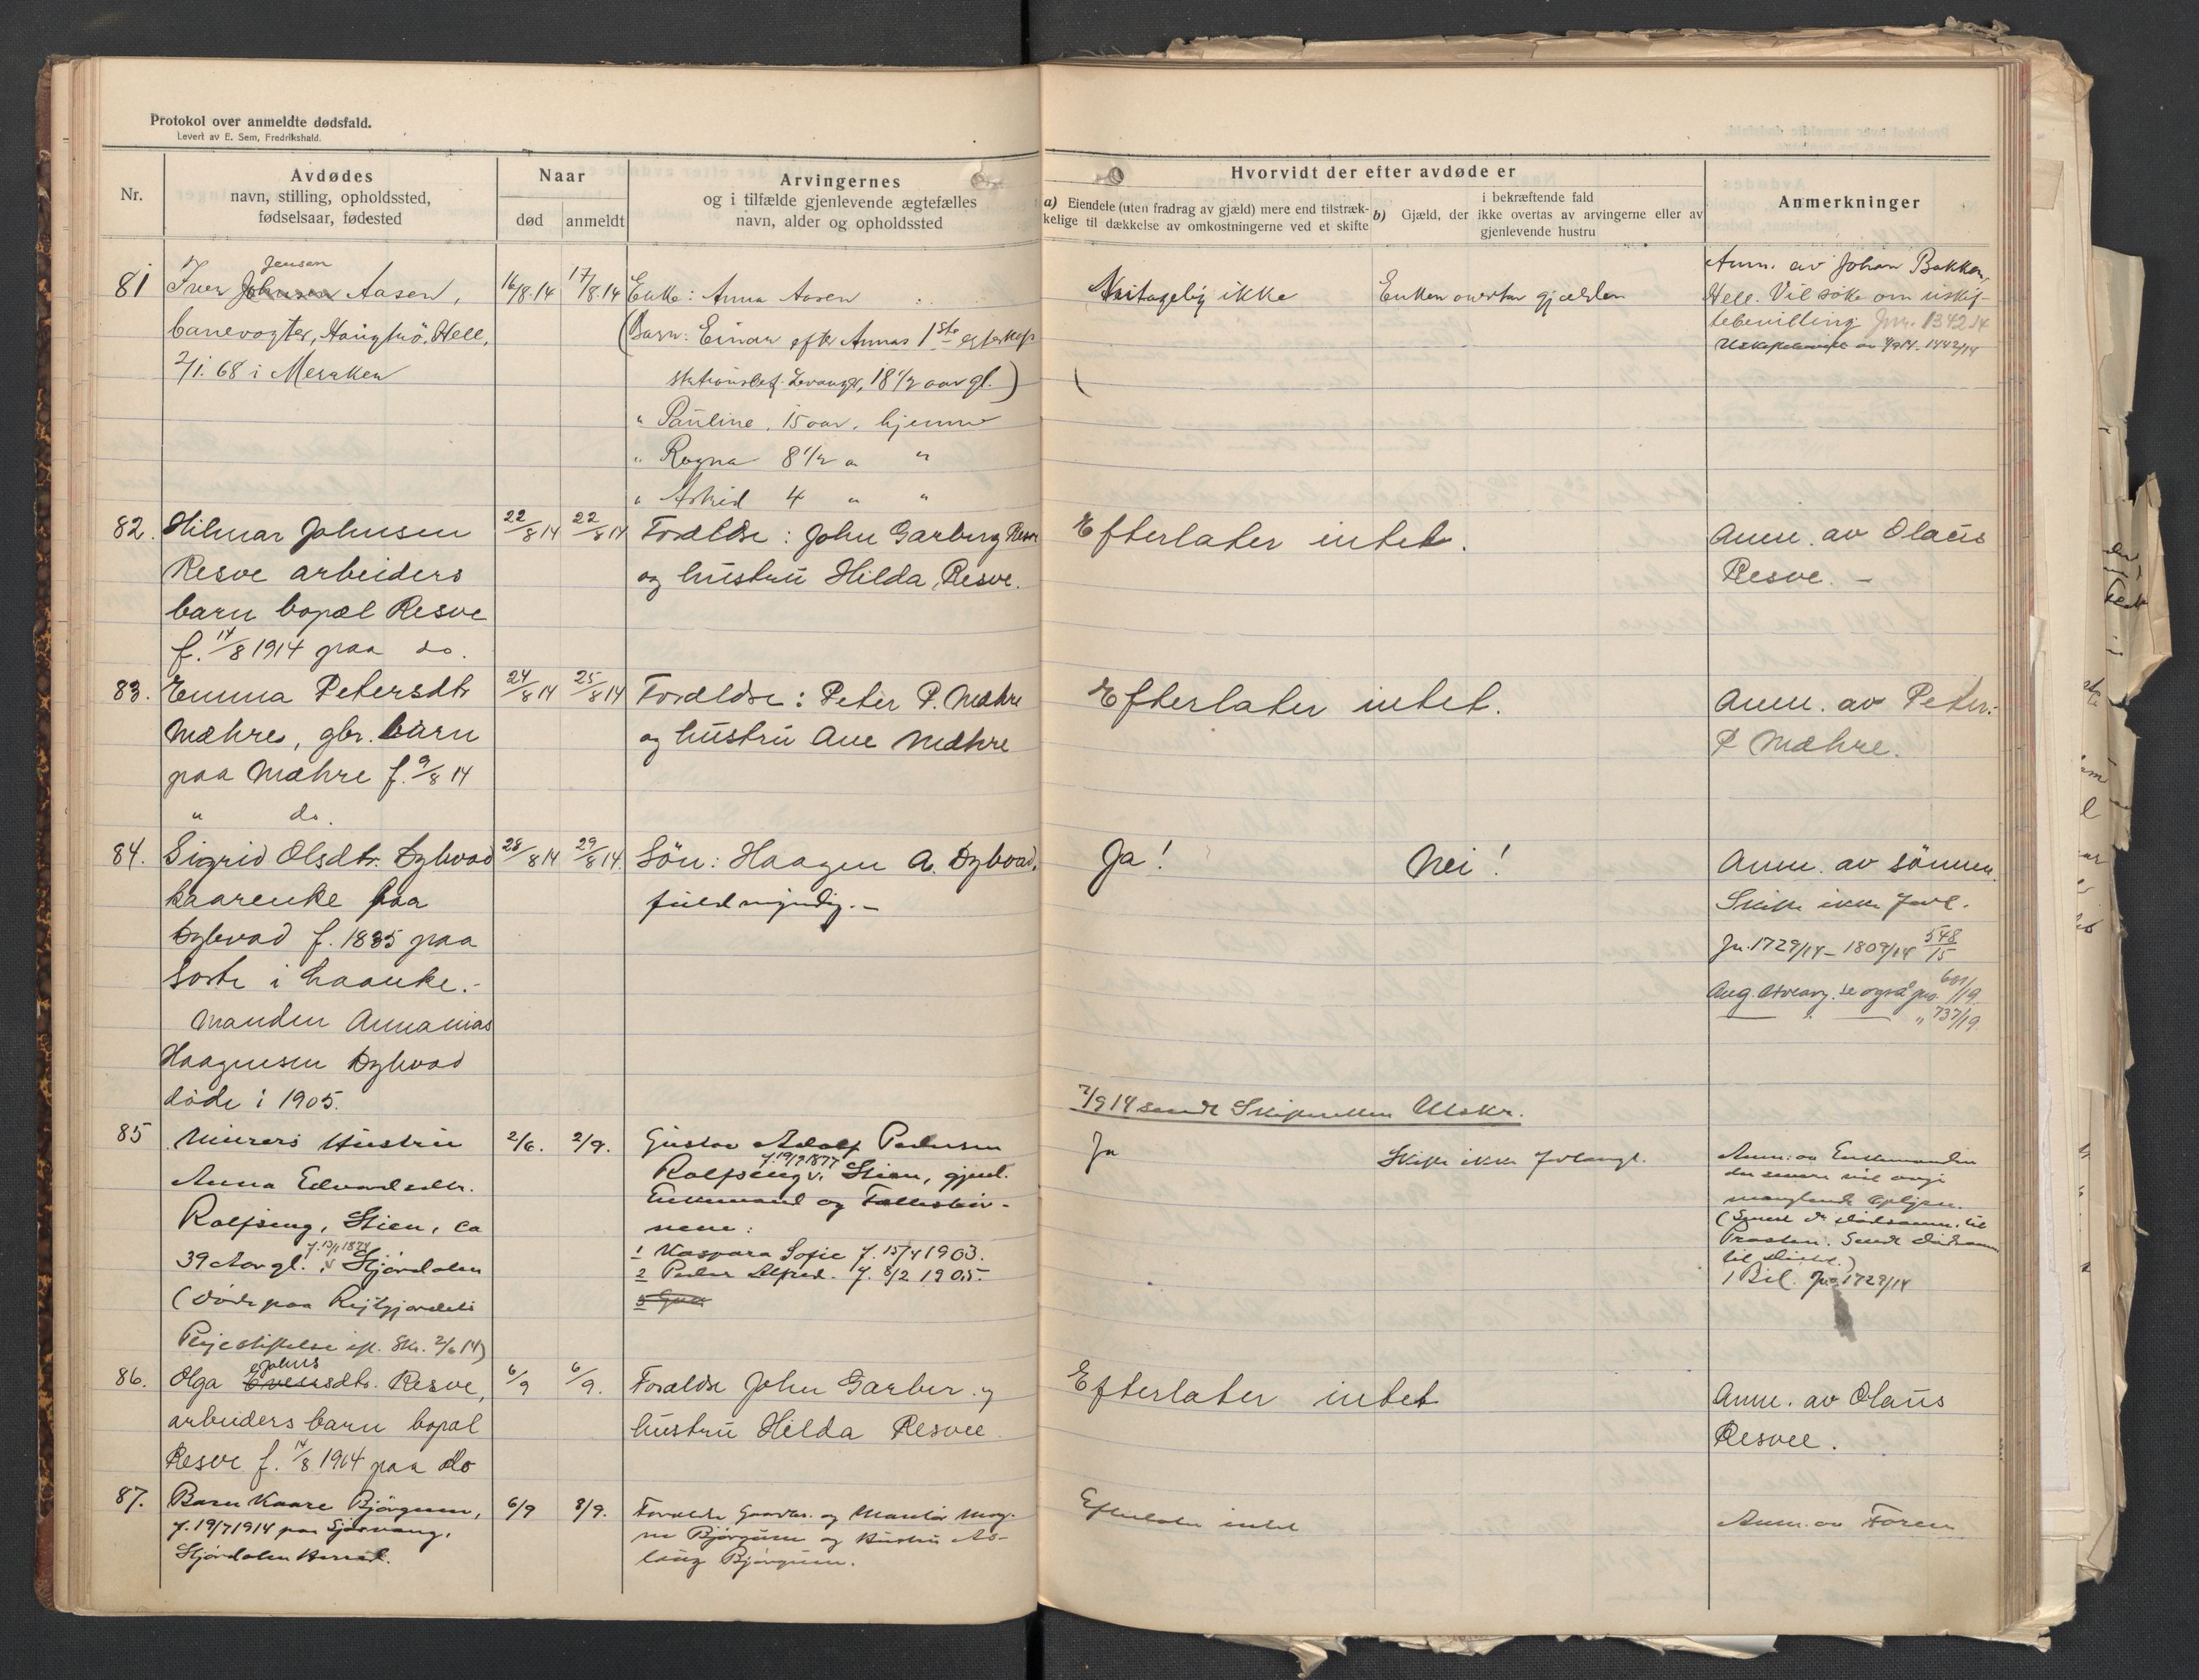 Protokol over anmeldte dødsfald.
Levert av E. Sem, Fredrikshald.
Nr.
Avdødes
navn, stilling, opholdssted,
fødselsaar, fødested
Naar
død
anmeldt
Arvingernes
og i tilfælde gjenlevende ægtefælles
navn, alder og opholdssted
Hvorvidt der efter avdøde er
a) Eiendele (uten fradrag av gjæld) mere end tilstræk-
kelige til dækkelse av omkostningerne ved et skifte
b) Gjæld, der
i bekræftende fald
ikke overtas av arvingerne eller av
gjenlevende hustru
Anmerkninger
81
Jensen
Iver Johnsen Aasen,
banevogter, Hell,
2/1. 68 i Meraken
16/8.14
17/8.14
Enke: Anna Aasen
(Barn: Einar efter Annas 1ste egteskap
18 1/2 aar gl.)
" Pauline, 15 aar, hjemme
" Ragna 8 1/2 " "
" Astrid 4 " "
ikke
Enken overtar gjælden
Anm. av Johan Bakken,
Hell. Vil søke om uskif-
tebevilling Jnr. 1342/14
1442/14
82.
Hilmar Johnsen
Resve arbeiders
barn bopæl Resve
f. 14/8 1914 paa do.
22/8 14
22/8 14
Forældre: John Garberg Resve
og hustru Hilda Resve.
Efterlater intet.
Anm. av Olaus
Resve. —
83.
Emma Petersdtr
Mæhre, gbr. barn
paa Mæhre f. 9/8 14
" do.
24/8 14
25/8 14
Forældre: Peter P. Mæhre
og hustru Ane Mæhre
Efterlater intet.
Anm. av Peter
P Mæhre.
84.
Sigrid Olsdtr. Dybvad
kaarenke paa
Dybvad f. 1835 paa
i Laanke.-
Manden Annanias
Haagensen Dybvad
døde i 1905.
28/8 14
29/8 14.
Søn: Haagen A. Dybvad,
fuldmyndig.—
Ja!
Nei!
Anm. av sønnen.
Skifte ikke forl.
Jn. 1729/14 — 1809/14 548/15
Ang. se også jno. 601/19.
" 737/19
2/9 14 sendt Skifteretten Utskr.
85
Murers Hustru
Anna Edvardsdtr.
Rolfseng, Stien, ca
f. 13/1 1874
39 Aar gl. Stjørdalen
(døde paa
Pleiestiftelse ifl. Skr. 2/6 14)
2/6.
2/9.
Gustav Adolf Pedersen
f. 19/9 1877
Rolfseng v. Stien, gjenl.
Enkemand og Fællesbør-
nene:
1 Kaspara Sofie f. 15/4 1903.
2 Peder Alfred. f. 8/2 1905.
Ja
Skifte ikke forlangt.
Anm. av Enkemanden
der senere vil opgi
manglende Oplysn.
Prosten. Sendt
1 Bil. Jno. 1729/14
86.
Johns
Olga dtr. Resve,
arbeiders barn bopæl
Resve f. 14/8 1914 paa do
6/9
6/9.
Forældre John Garber. og
hustru Hilda Resvee
Efterlater intet
Anm. av Olaus
Resvee.
87.
Barn Kaare Bjørgum,
f. 19/7 1914 paa
Stjørdalen Herred.
6/9
8/9.
Forældre Gaardbr. og
Bjørgum og Hustru As-
laug Bjørgum.
Efterlater intet
Anm. av Faren